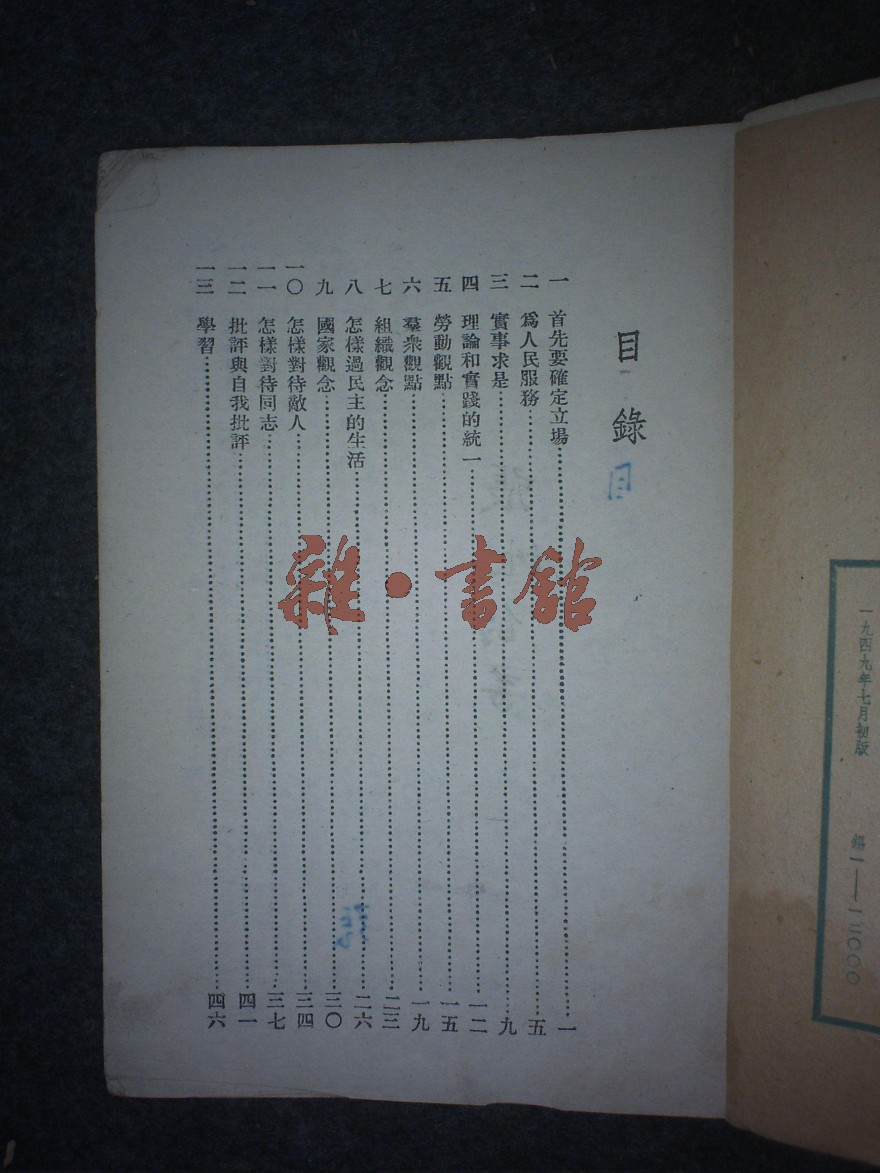 一九四九年七月初版
錫一——一三〇〇〇
目錄
一 首先要確定立場……一
二 爲人民服務……五
三 實事求是……九
四 理論和實踐的統一……一二
五 勞動觀點……一五
六 羣衆觀點……一九
七 組織觀念……二三
八 怎樣過民主的生活……二六
九 國家觀念……三〇
一〇 怎樣對待敵人……三四
一一 怎樣對待同志……三七
一二 批評與自我批評……四一
一三 學習……四六
雜·書館